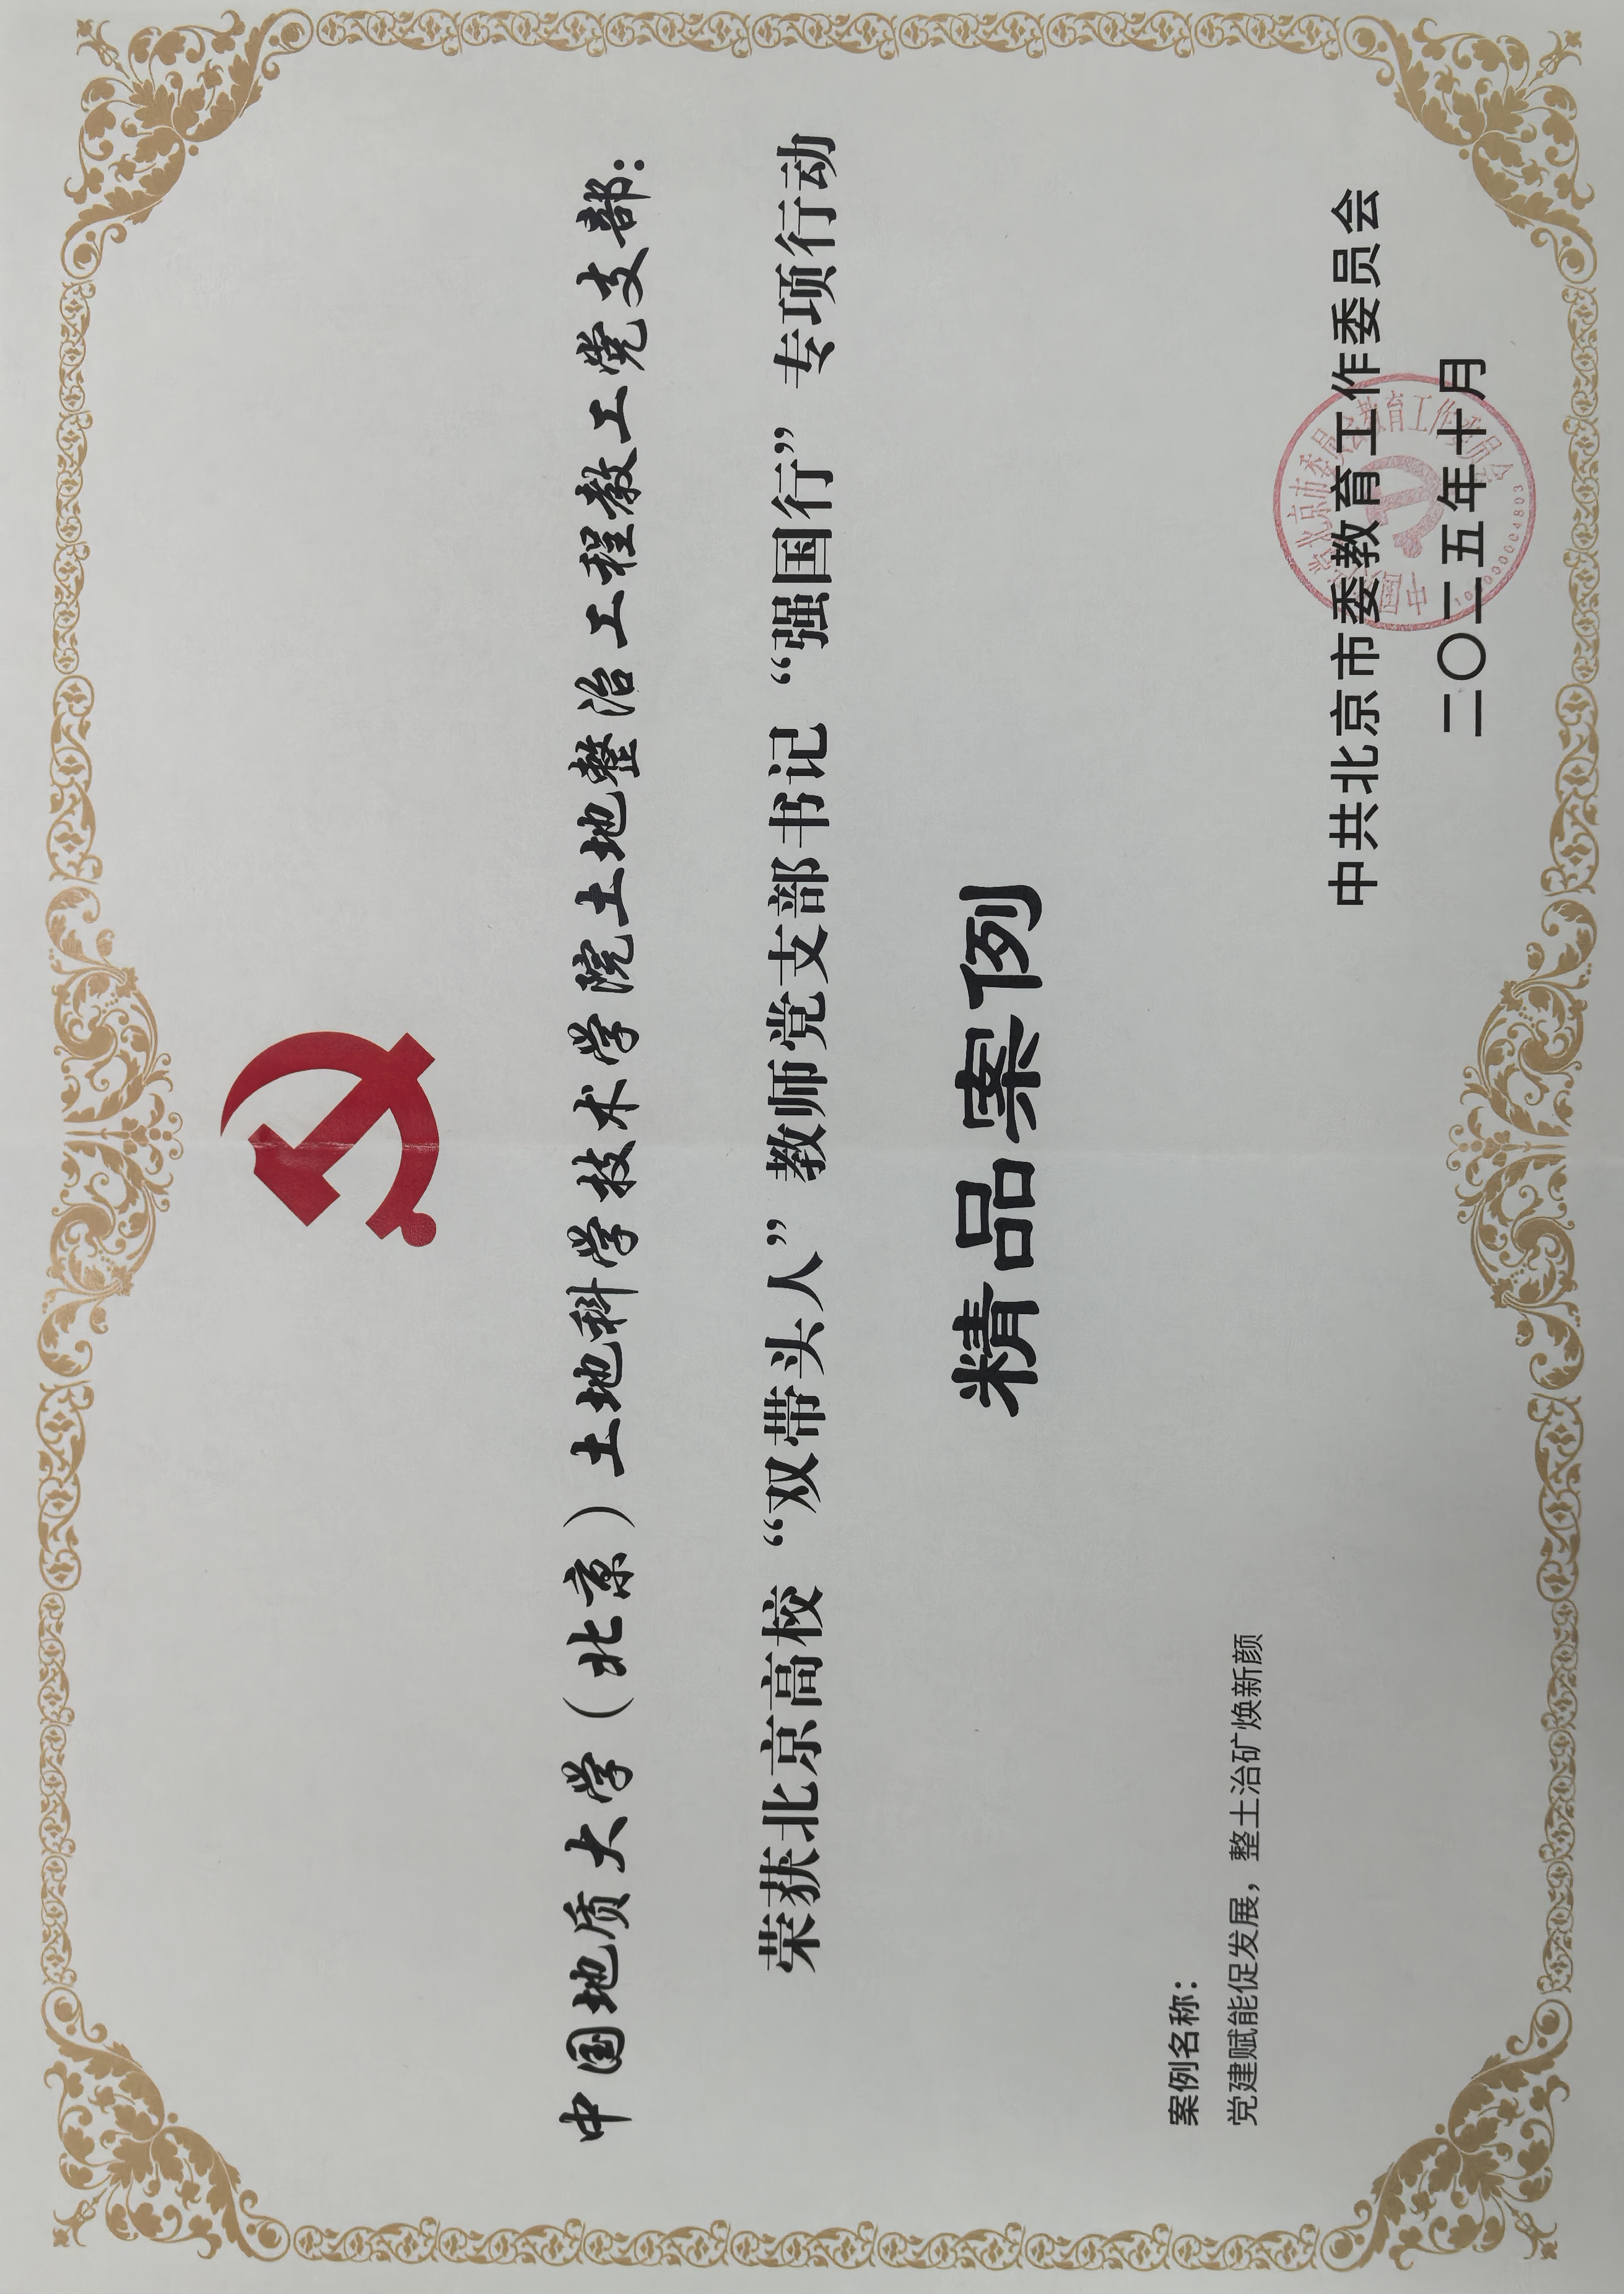 中国地质大学（北京）土地科学技术学院土地整治工程教工党支部：
荣获北京高校“双带头人”教师党支部书记“强国行”专项行动
精品案例
案例名称：
党建赋能促发展，整土治矿焕新颜
中共北京市委教育工作委员会
二〇二五年十月